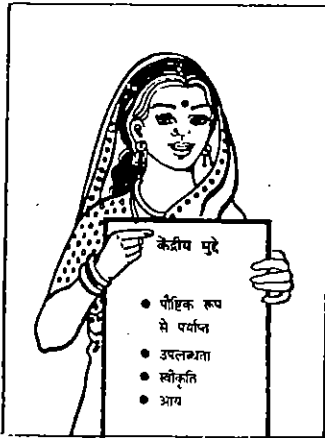 केंद्रीय मुद्दे
● पौष्टिक रूप
से पर्याप्त
● उपलब्धता
● स्वीकृति
● आय